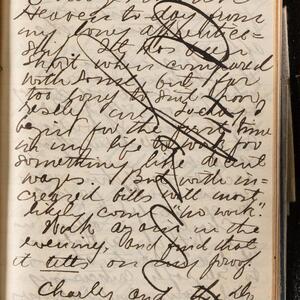 Heavens to day from
my long apprentice-
ship. It has been
short when compared
with some but far
too long to suit poor
me. To day I
begin for the first time
in my life to work for
something like decent
wages. But with in-
creased bills will most
likely come "no work".
Work again in the
evening, and find that
it tells on my proof.
Charley and